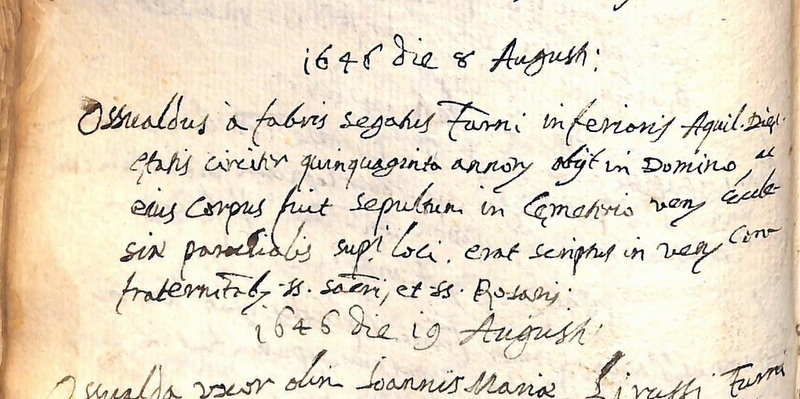 1646 die 8 Augusti:
Ossualdus à fabris segatus Furni inferioris Aquil. Dioc.
ętatis circiter quinquaginta annorũ obijt in Domino, ac
eius Corpus fuit sepultum in Cęmeterio Eccle-
siæ parochialis supi. loci. erat scriptus in Con-
fraternitatũ ss. sacri, et ss. Rosarij.
1646 die 19 Augusti
Osualda uxor olim Ioannis Mariæ Furni